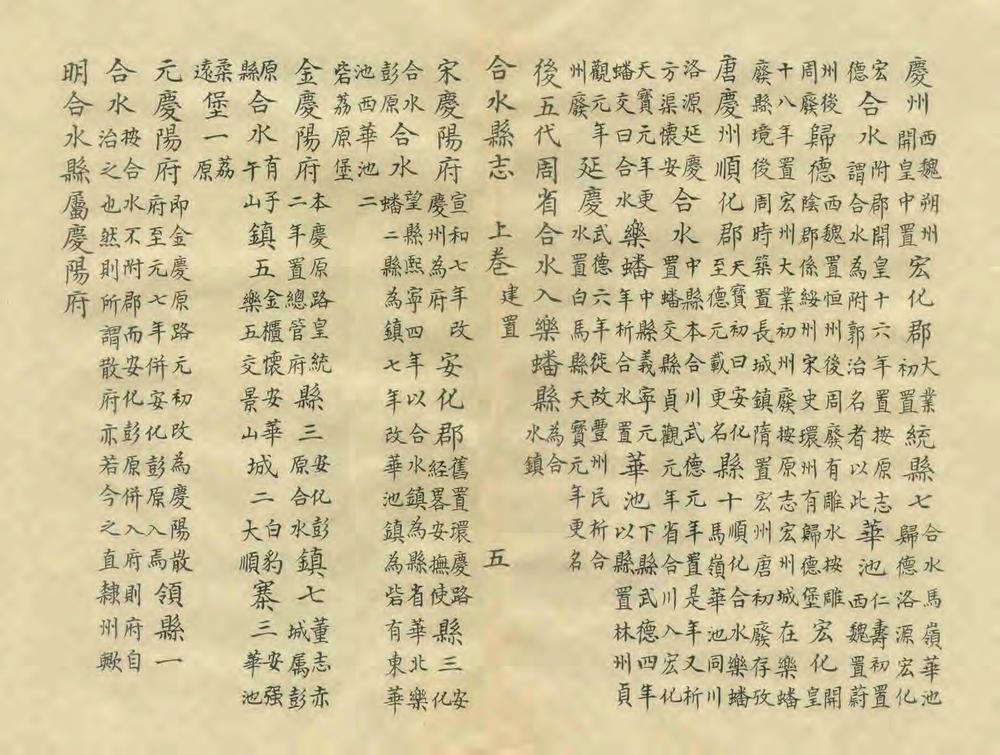 慶州西魏朔州開皇中置宏化郡大業初置統縣七合水馬嶺華池歸德洛源宏化
宏德合水附郡開皇十六年置按原志謂合水為附郭治名者以此華池仁壽初置西魏置蔚
州後周廢歸德西魏置恒州後周廢有雕水按雕陰郡係綏州宋史環州有歸德堡宏化開皇
十八年置宏州大業初州廢按原志宏州城在樂蟠廢縣境後周時築長城鎮隋置宏州唐初廢存攷
唐慶州順化郡天寶初曰安化至德元載更名縣十順化合水樂蟠馬嶺華池同川
洛源延慶方渠懷安合水中縣本合川武德元年置是年又析置蟠交縣貞觀元年省合川入宏化
天寶元年更蟠交曰合水樂蟠中縣義寧元年析合水置華池下縣武德四年以縣置林州貞
觀元年州廢延慶武德六年徙故豐州民析合水置白馬縣天寶元年更名
後五代周省合水入樂蟠縣為合水鎮
合水縣志 上卷 建置 五
宋慶陽府宣和七年改慶州為府安化郡舊置環慶路經畧安撫使縣三安化
合水彭原合水望縣熙寧四年以合水鎮為縣省華北樂蟠二縣為鎮七年改華池鎮為砦有東華
池西華池砦荔原堡二
金慶陽府本慶原路皇統二年置總管府縣三安化彭原合水鎮七董志赤城厲彭
原縣合水有子午山鎮五金櫃懷安華樂五交景山城二白豹大順寨三安强華池
桑遠堡一荔原
元慶陽府即金慶原路元初改為慶陽散府至元七年併安化彭原入焉領縣一
合水按合水附郡而安化彭原併入府則府自治之也然則所謂散府亦若今之直隸州歟
明合水縣屬慶陽府